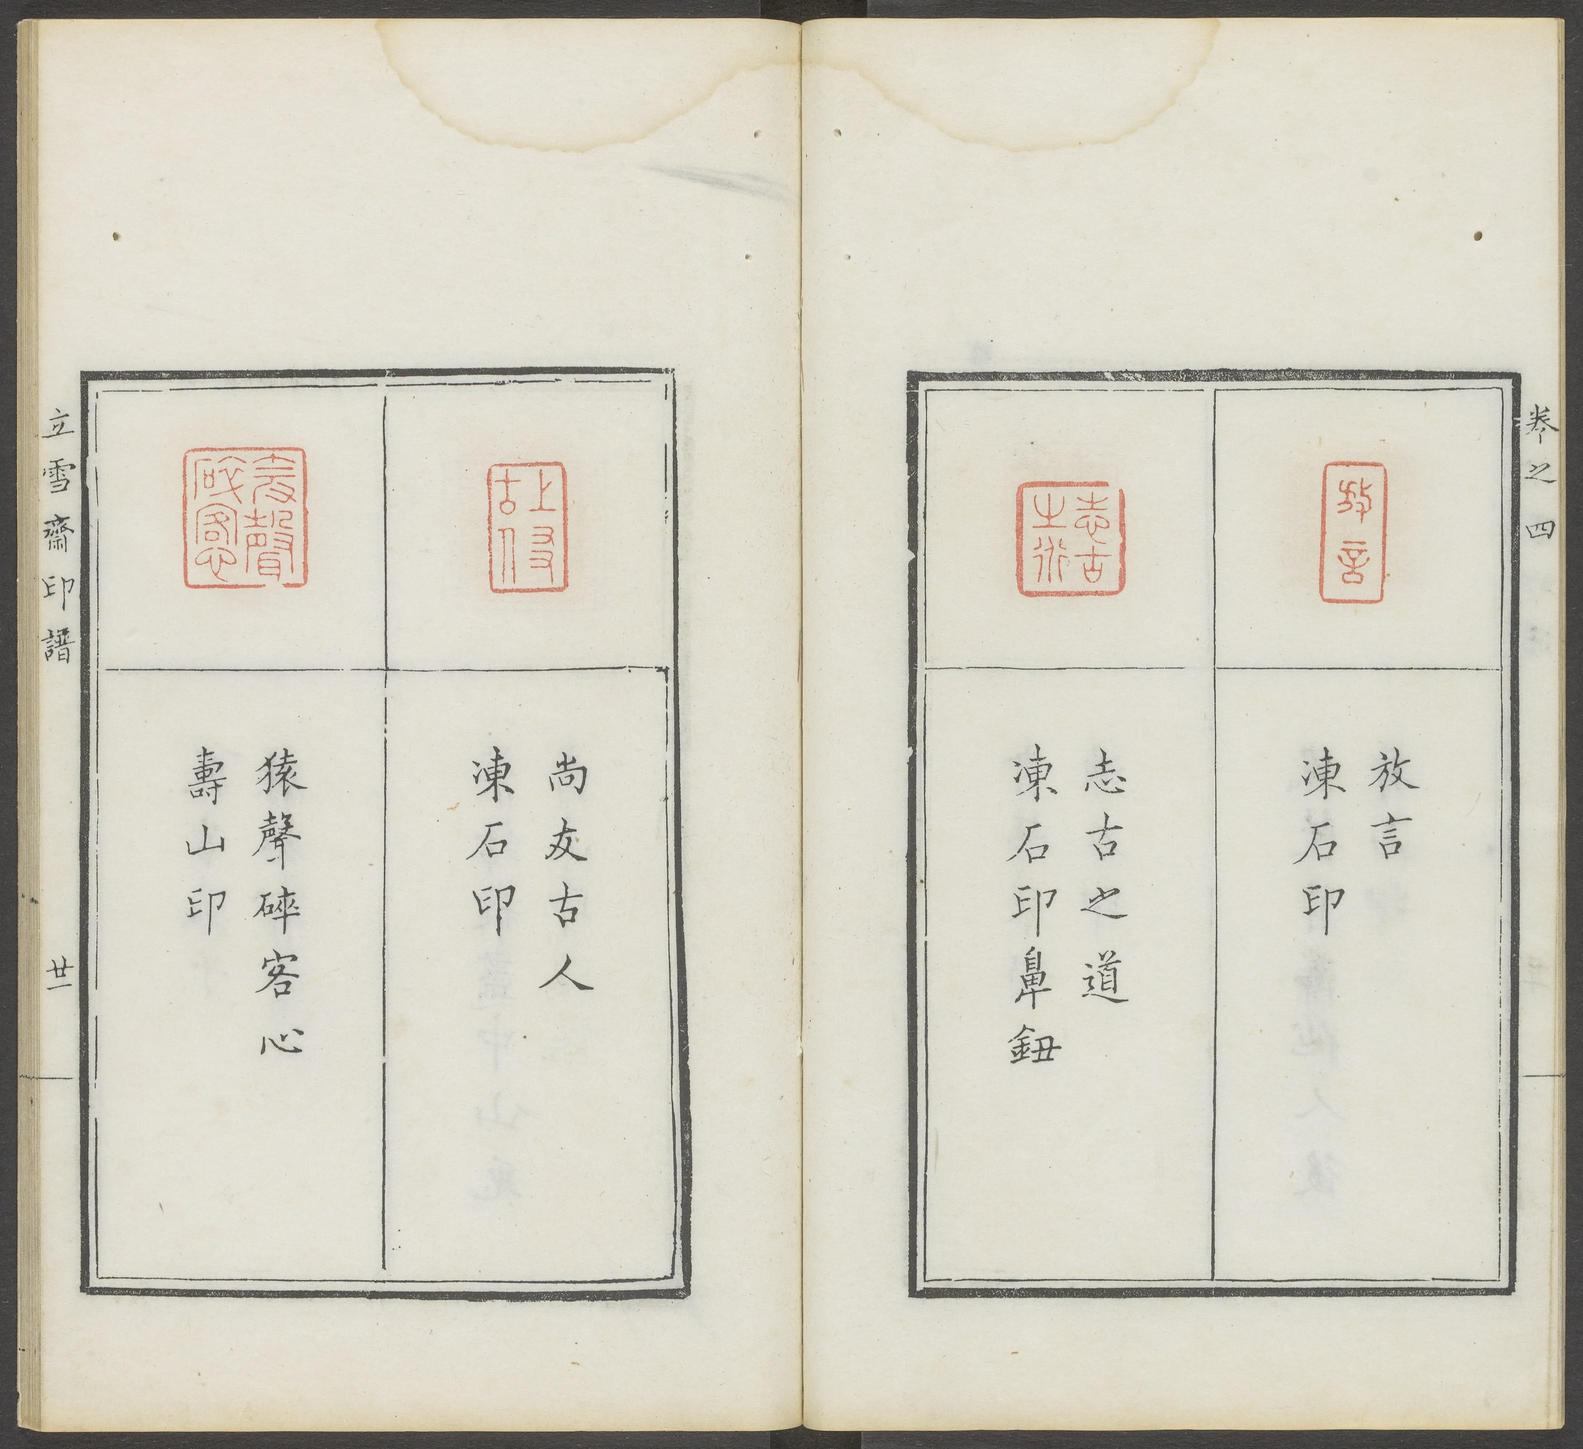 卷之四
放言
放言
凍石印
志古之道
志古之道
凍石印鼻鈕
尚友古人
凍石印
猿聲碎客心
壽山印
立雪齋印譜
廿一